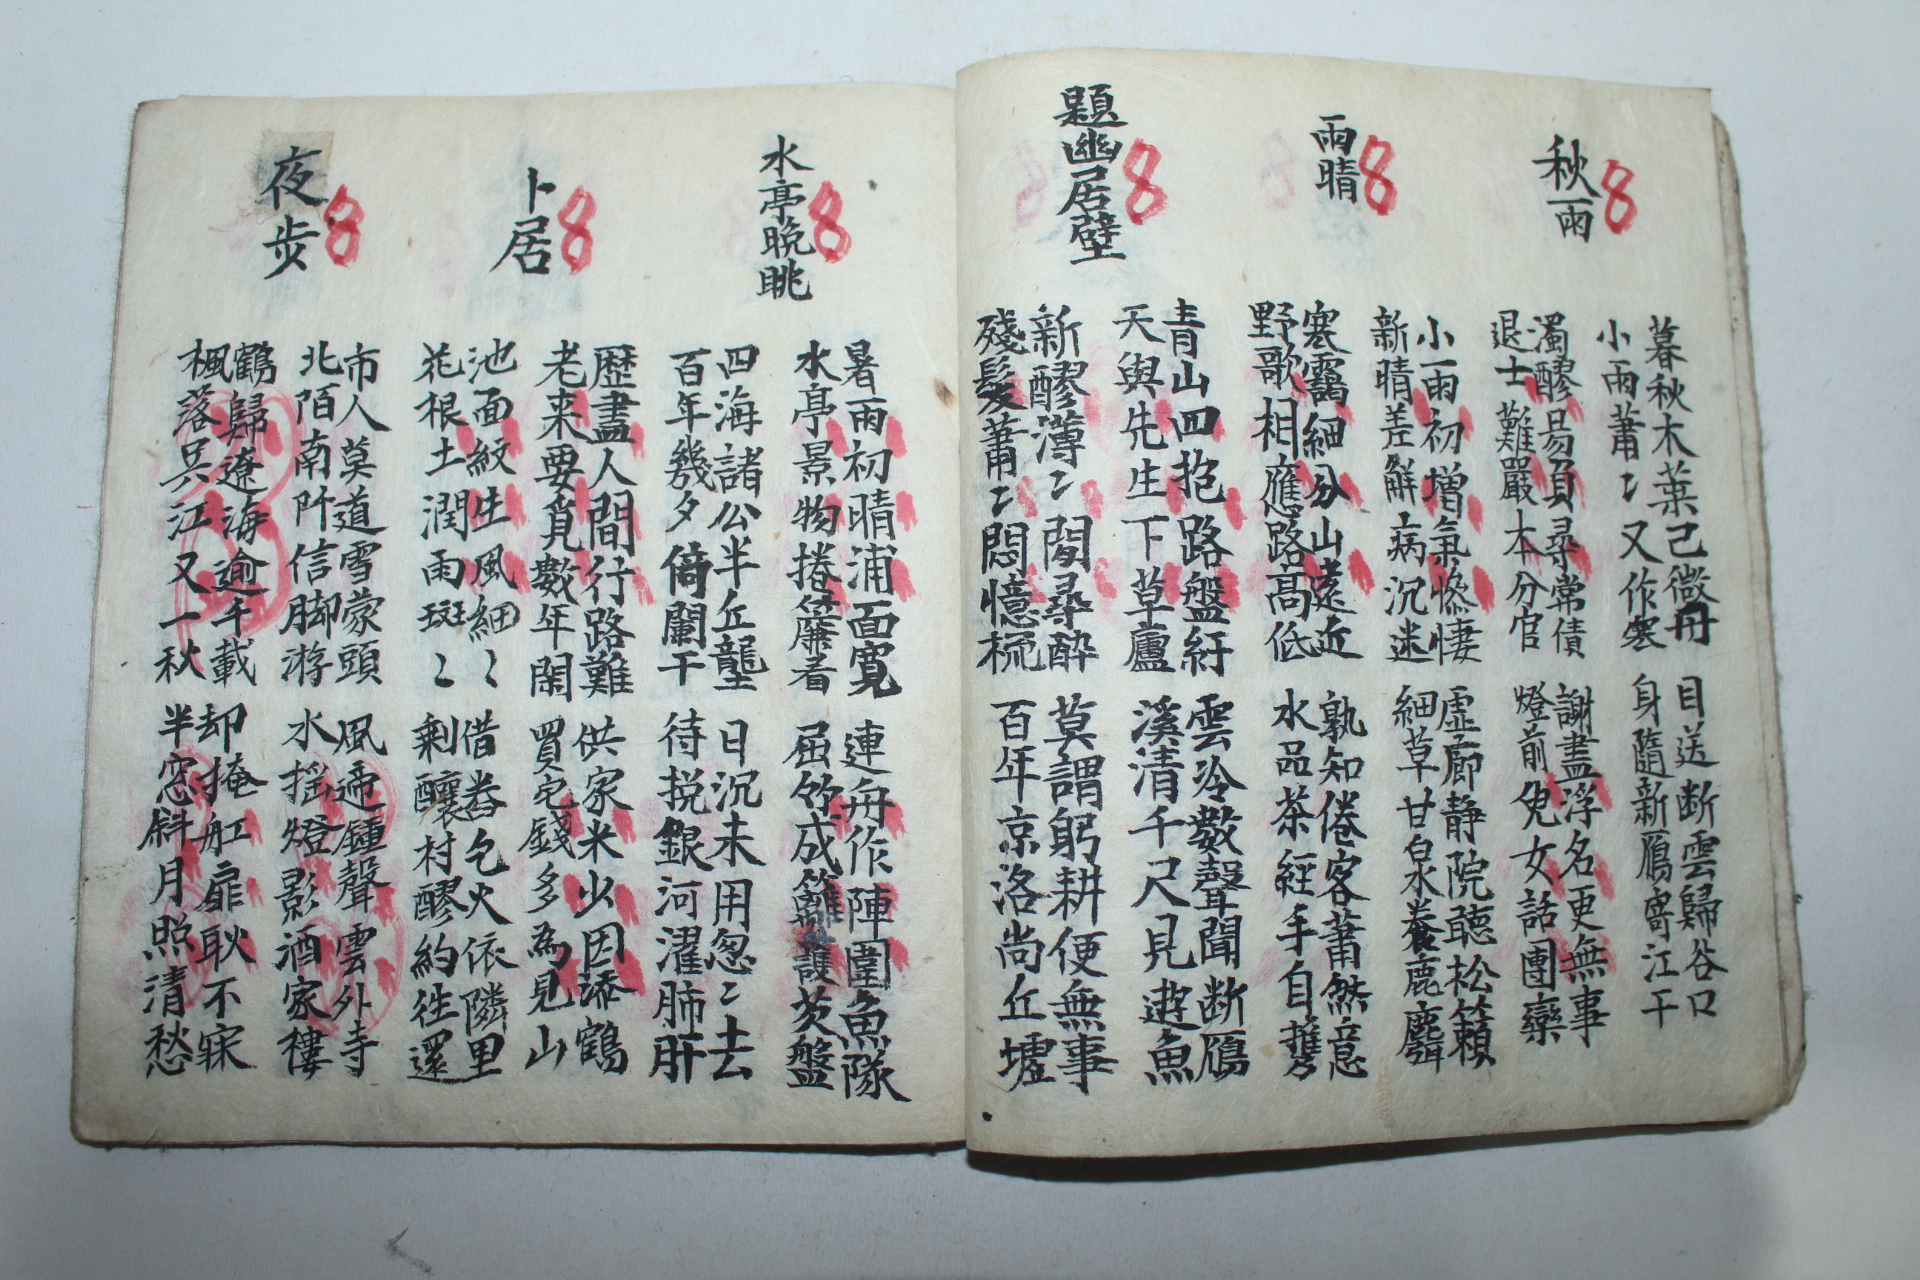 秋雨 8
暮秋木葉已微丹 目送断雲歸谷口
小雨蕭〻又作寒 身隨新鴈寄江干
濁醪易負尋常債 謝盡浮名更無事
退士難嚴本分官 燈前兒女話團欒
雨晴 8
小雨初增氣慘悽 虛廊静院聽松籟
新晴差解病沉迷 細草甘泉養鹿麛
寒靄細分山遠近 孰知倦客蕭然意
野歌相應路高低 水品茶經手自携
題幽居壁 8
青山四抱路盤紆 雲冷數聲聞断鴈
天與先生下草廬 溪清千尺見遊魚
新醪薄〻閒尋醉 莫謂躬耕便無事
殘髮蕭〻悶憶梳 百年京洛尚丘墟
水亭晩眺 8
暑雨初晴浦面寛 連舟作陣圍魚隊
水亭景物捲簾看 屈竹成籬護芡盤
四海諸公半丘壟 日沉未用怱〻去
百年幾夕倚闌干 待挽銀河濯肺肝
卜居 8
歷盡人間行路難 供家米少因添鶴
老来要覓數年閑 買宅錢多為見山
池面紋生風細〻 借舂乞火依隣里
花根土潤雨斑〻 剩釀村醪約徃還
夜步 8
市人莫道雪蒙頭 風遞鍾聲雲外寺
北陌南阡信脚游 水揺燈影酒家樓
鶴歸遼海逾千載 却掩舡扉耿不寐
楓落吳江又一秋 半窓斜月照清愁